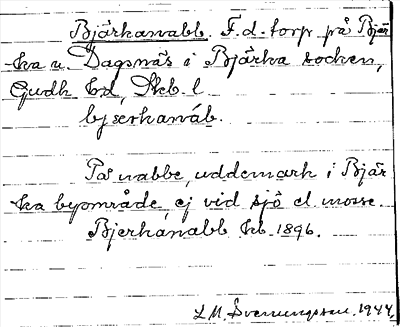 Bjärkanabb. F.d. torp på Bjär
ka u. Dagsnäs i Bjärka socken,
Gudh hd, Skb. l.
bjærkanáb.
På nabbe, uddemark i Bjär
ka byområde, ej vid sjö el. mosse.
Bjerkanabb kb 1896.
L M Svenungsson. 1944.